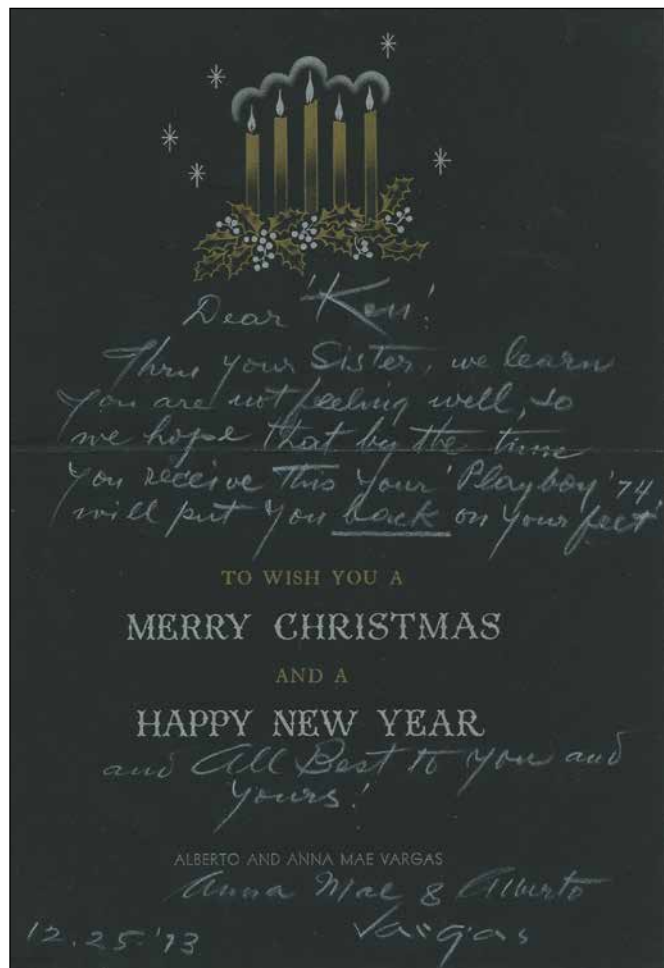 Dear 'Ken'!
Thru your Sister, we learn
you are not feeling well, so
we hope that by the time
you receive this your 'Playboy' '74,
will put you back on your feet
TO WISH YOU A
MERRY CHRISTMAS
AND A
HAPPY NEW YEAR
and All Best to you and
yours!
ALBERTO AND ANNA MAE VARGAS
Anna Mae & Alberto
Vargas
12.25.'73